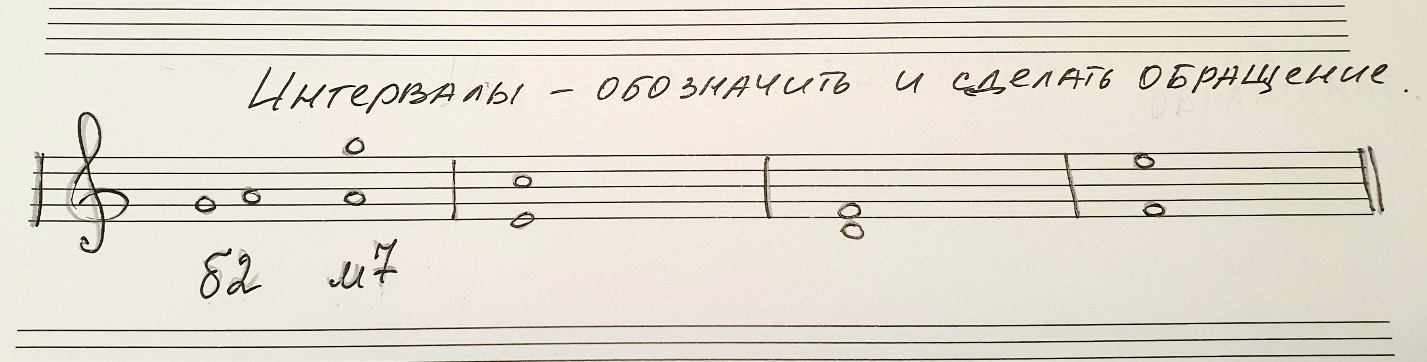 Интервалы – обозначить и сделать обращение.
б2 м7